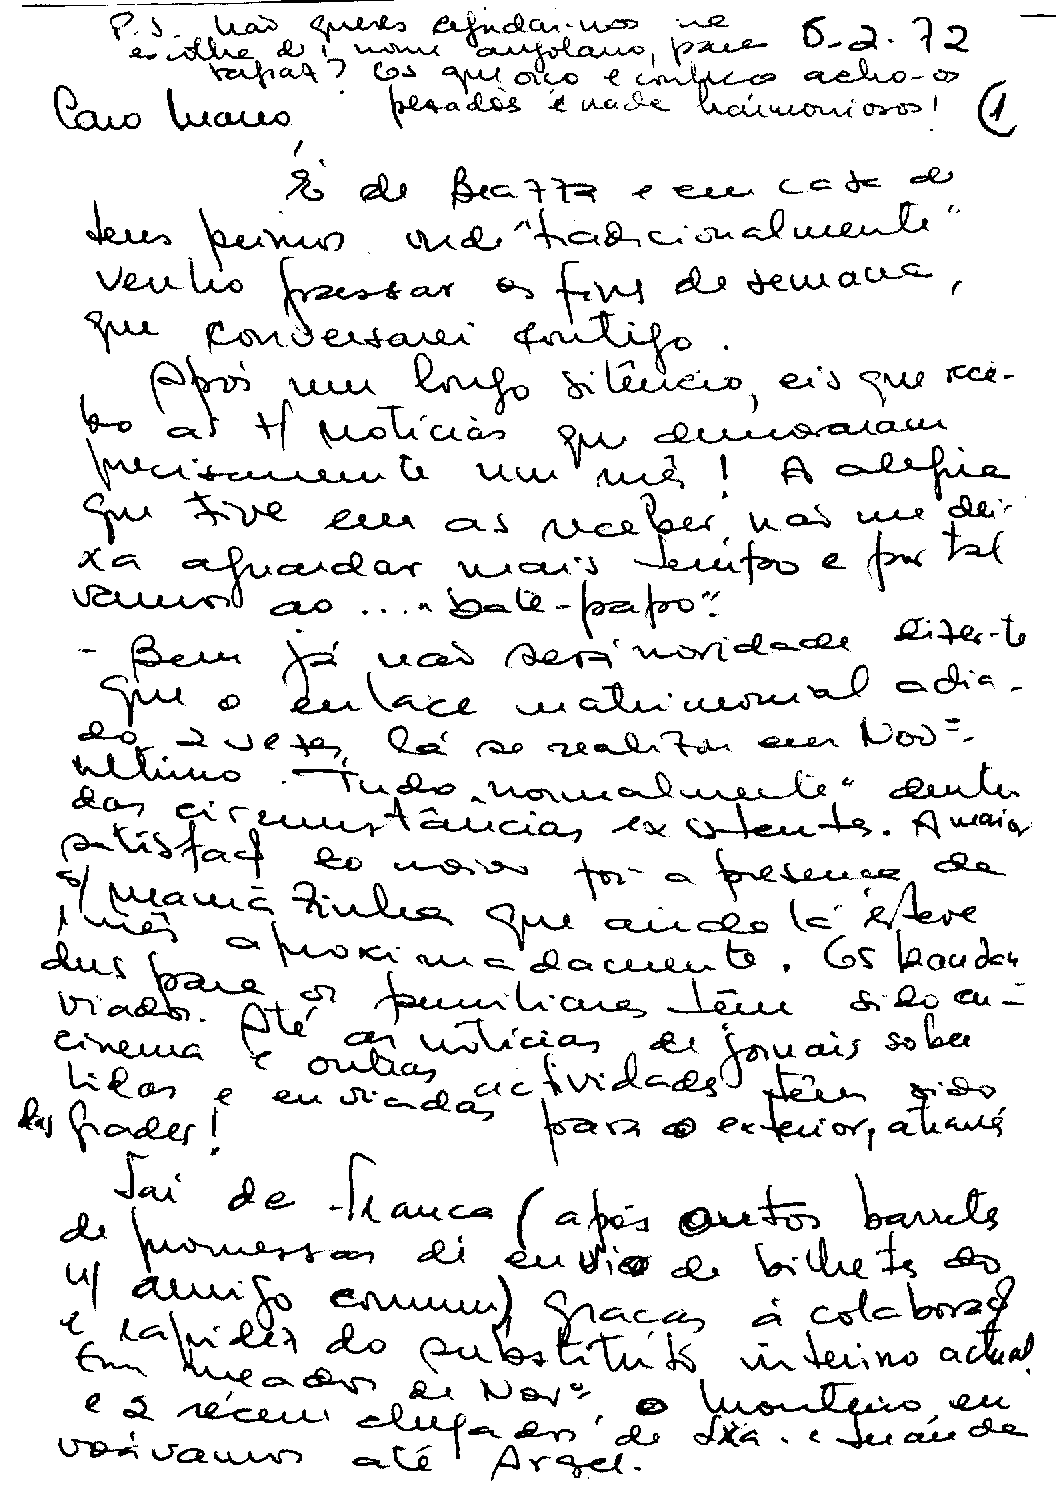 P.S. Não queres ajudar-nos na
escolha de 1 nome angolano, para 6-2-72
rapaz? Os que oiço e conheço acho-os
pesados e nada harmoniosos! (1
Caro Mano,
É de Brazza e em casa de
teus primos onde "tradicionalmente"
venho passar os fins de semana,
que conversarei contigo.
Após um longo silêncio, eis que rece-
bo as t/ notícias que demoraram
precisamente um mês! A alegria
que tive em as receber não me dei-
xa aguardar mais tempo e por tal
vamos ao ... "bate-papo".
- Bem já não será novidade dizer-te
que o enlace matrimonial adia-
do 2 vezes, lá se realizou em Nov=.
último. Tudo "normalmente" dentro
das circunstâncias existentes. A maior
satisfaç do noivo foi a presença da
s/ mamã Zinha que ainda lá esteve
1 mês aproximadamente. Os
dus para os familiares têm sido en-
viados. Até as notícias de jornais sobre
cinema e outras actividades têm sido
lidas e enviadas para o exterior, através
das grades!
Saí de França (após outros barretes
de promessas de envio de bilhete do
n/ amigo comum) graças à colaboraç
e rapidez do substituto interino actual.
Em meados de Nov=, o Monteiro, eu
e 2 récem chegados de Lxa. e Luanda
voávamos até Argel.